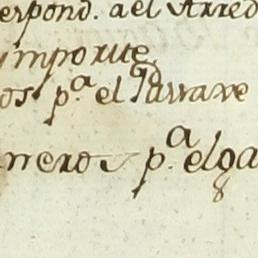 erpond. a el Arred
ymporte
os p.ª el Jarrave
neros p.ª el ga